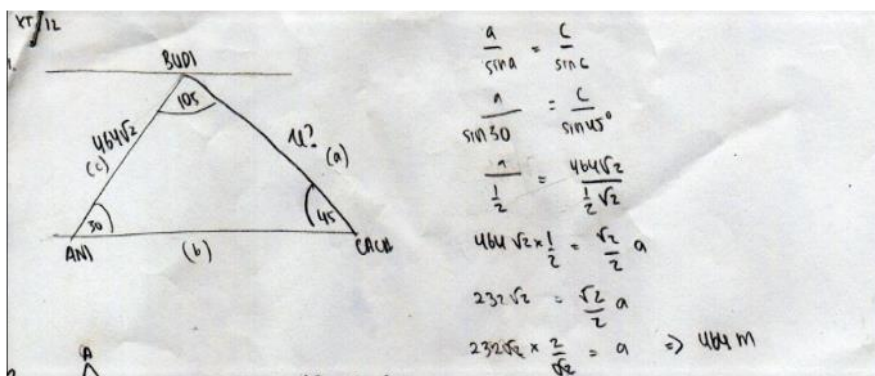 XI/12
1.
BUDI
105
464√2
(c)
u?
(a)
30
45
ANI
(b)
CACA
a/sin A = c/sin C
a/sin 30 = c/sin 45°
a/½ = 464√2/½√2
464√2 × 1/2 = √2/2 a
232√2 = √2/2 a
232√2 × 2/√2 = a => 464 m
A